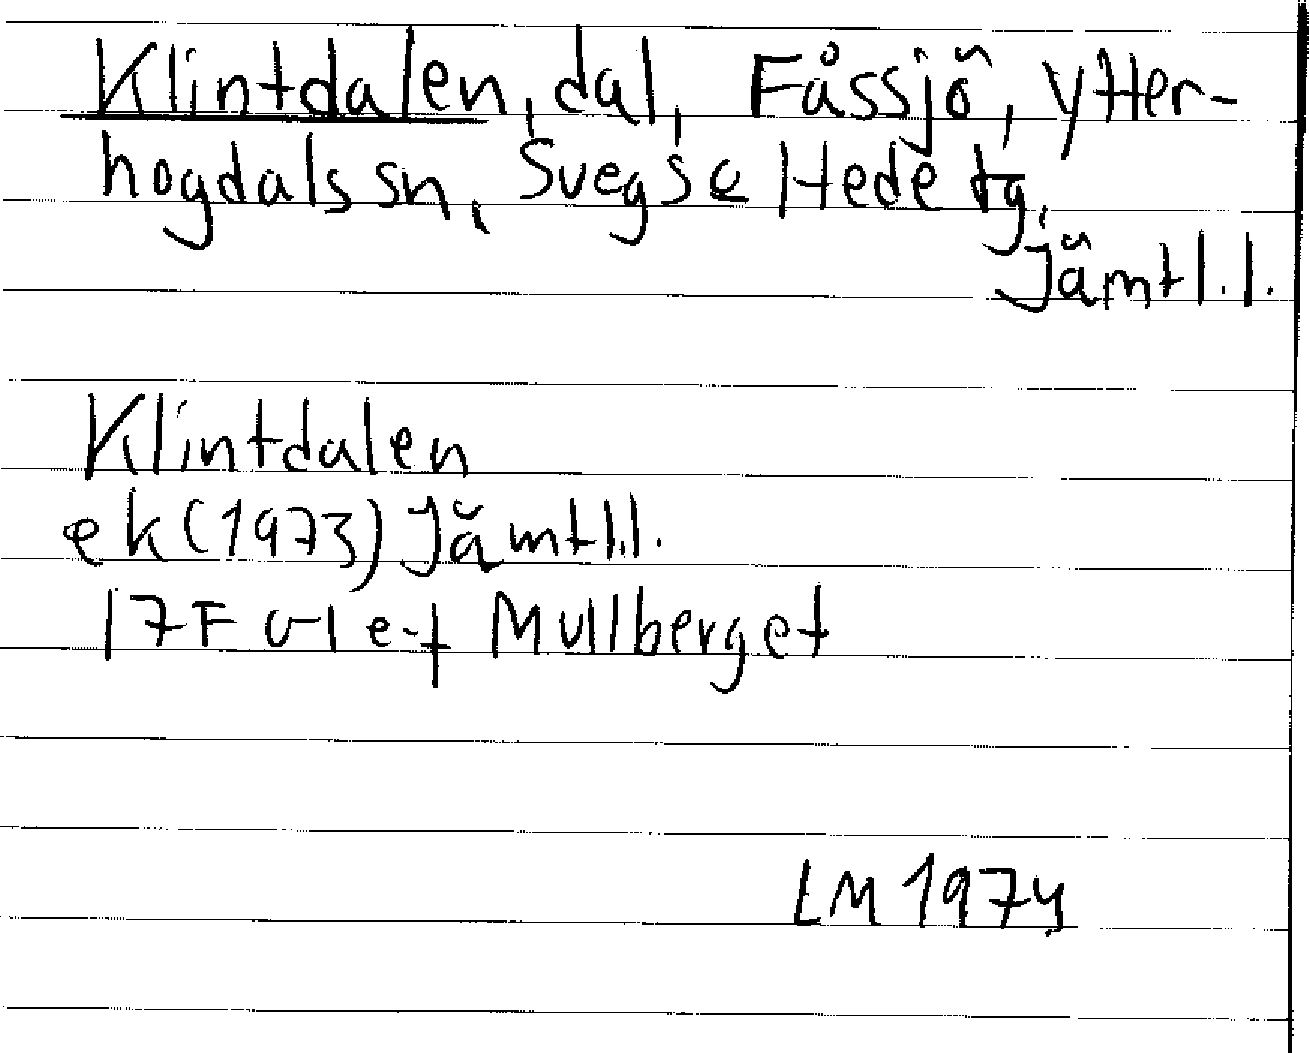 Klintdalen, dal, Fåssjö, Ytter-
hogdals sn, Svegs o Hede tg,
Jämtl. l.
Klintdalen
ek (1973) Jämtl.l.
17F 0-1 e-f Mullberget
LM 1974